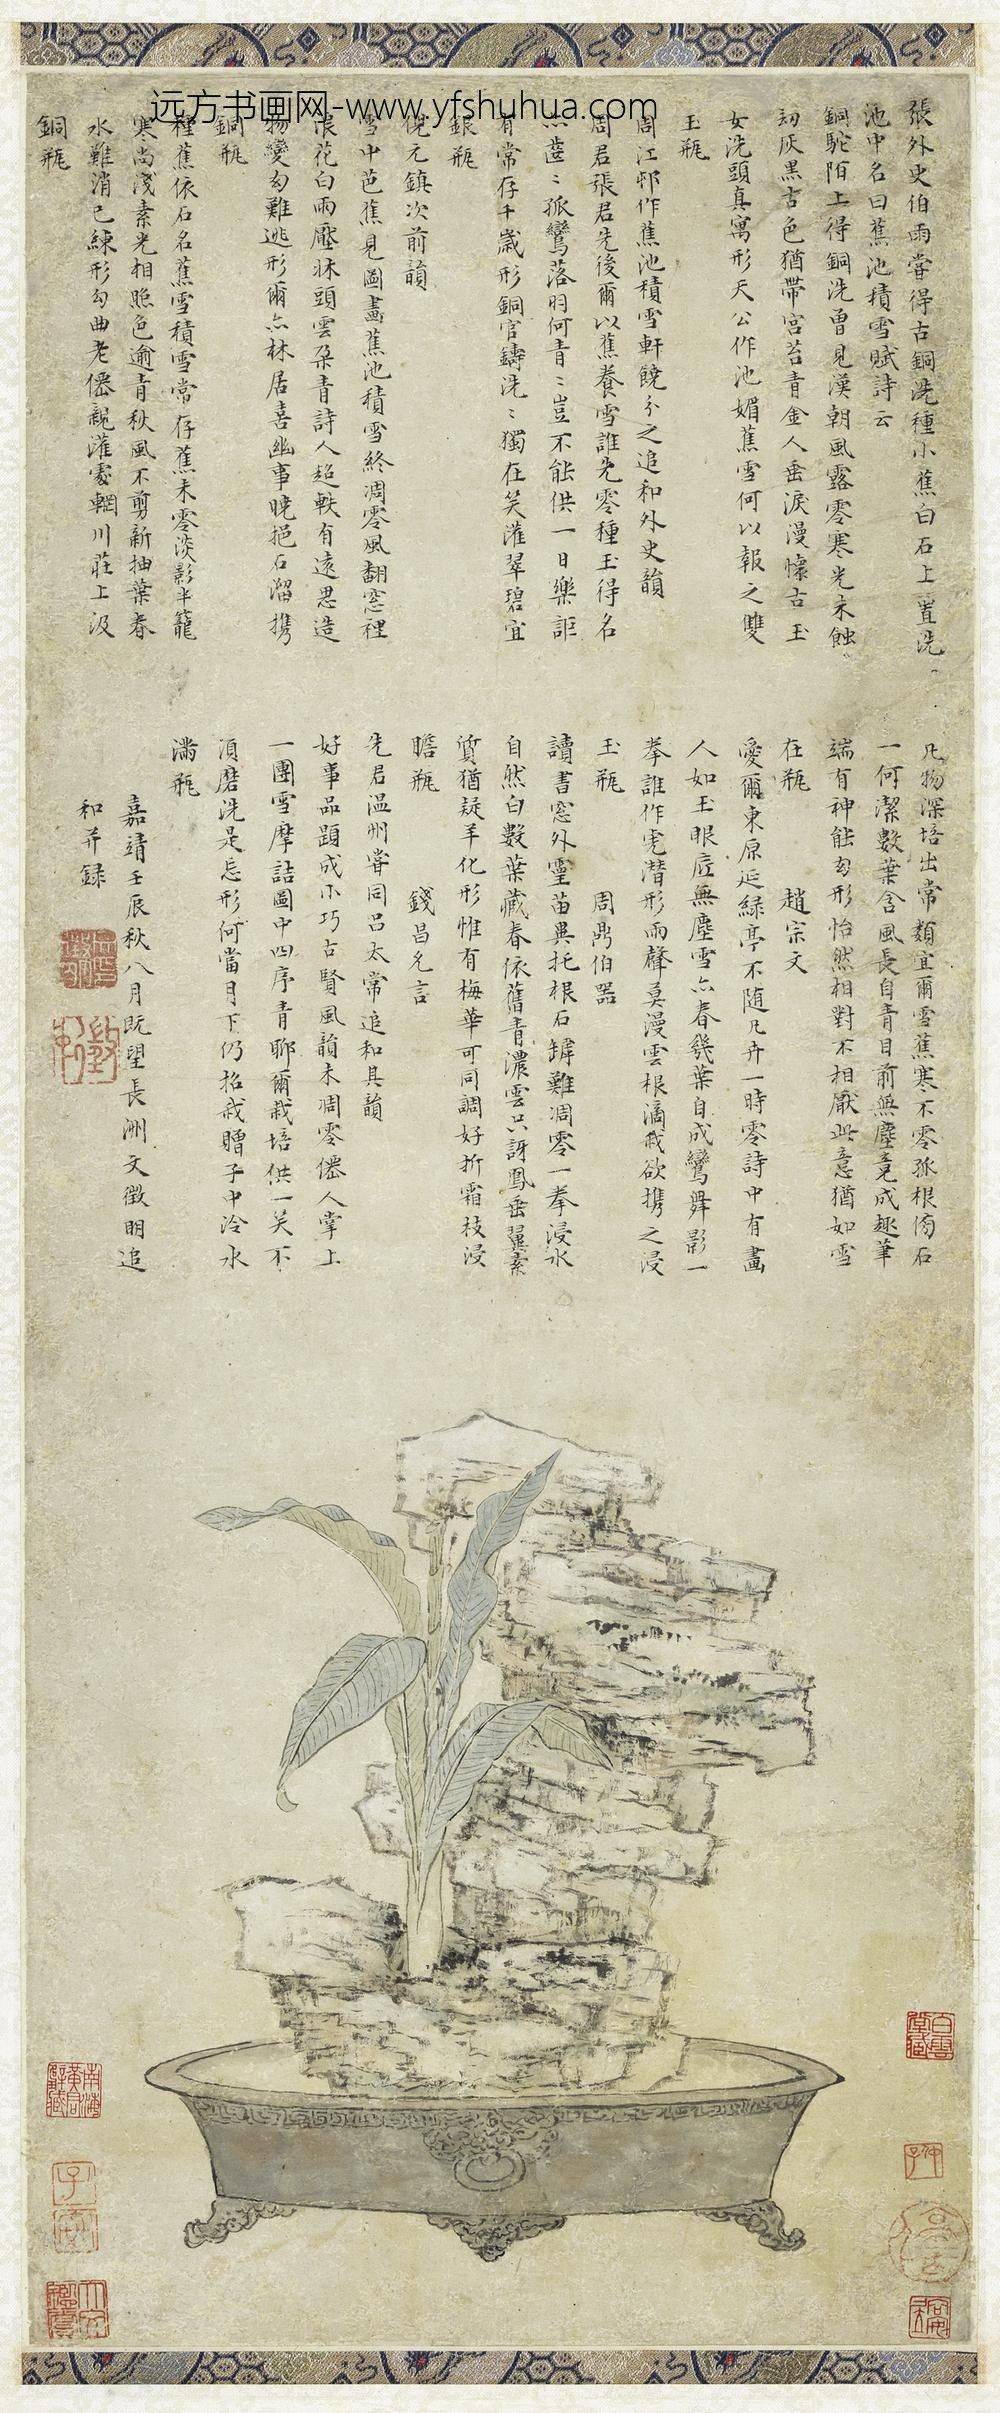 远方书画网-www.yfshuhua.com
張外史伯雨嘗得古銅洗種小蕉白石上置洗
池中名曰蕉池積雪賦詩云
銅駝陌上得銅洗曾見漢朝風露零寒光未蝕
劫灰黑古色猶帶宮苔青金人垂淚漫懷古玉
女洗頭真寓形天公作池媚蕉雪何以報之雙
玉瓶
周江邨作蕉池積雪軒饒介之追和外史韻
周君張君先後爾以蕉養雪誰先零種玉得名
三孤鸞落羽何青三豈不能供一日樂詎
有常存千歲形銅官鑄洗三獨在笑灌翠碧宜
銀瓶
倪元鎮次前韻
雪中芭蕉見圖畫蕉池積雪終凋零風翻窓裡
浪花白雨壓牀頭雲朶青詩人超軼有遠思造
物變幻難逃形爾亦林居喜幽事曉挹石溜携
銅瓶
種蕉依石名蕉雪積雪常存蕉未零淡影半籠
寒尚淺素光相照色逾青秋風不剪新抽葉春
水難消已練形勾曲老僊親灌處輞川莊上汲
銅瓶
凡物深培出常類宜爾雪蕉寒不零孤根倚石
一何潔數葉含風長自青目前無塵竟成趣筆
端有神能幻形怡然相對不相厭此意猶如雪
在瓶
趙宗文
愛爾東原延緑亭不随凡卉一時零詩中有畫
人如玉眼底無塵雪亦春幾葉自成鸞舞影一
拳誰作虎潛形雨聲莫漫雲根滴我欲携之浸
玉瓶
周鼎伯器
讀書窓外靈苗異托根石罅難凋零一拳浸水
自然白數葉藏春依舊青濃雲只訝鳳垂翼素
質猶疑羊化形惟有梅華可同調好折霜枝浸
膽瓶
錢昌允言
先君温州嘗同吕太常追和其韻
好事品題成小巧古賢風韻未凋零僊人掌上
一團雪摩詰圖中四序青聊爾栽培供一笑不
須磨洗是忘形何當月下仍招我贈子中泠水
滿瓶
嘉靖壬辰秋八月既望長洲文徵明追
和并録